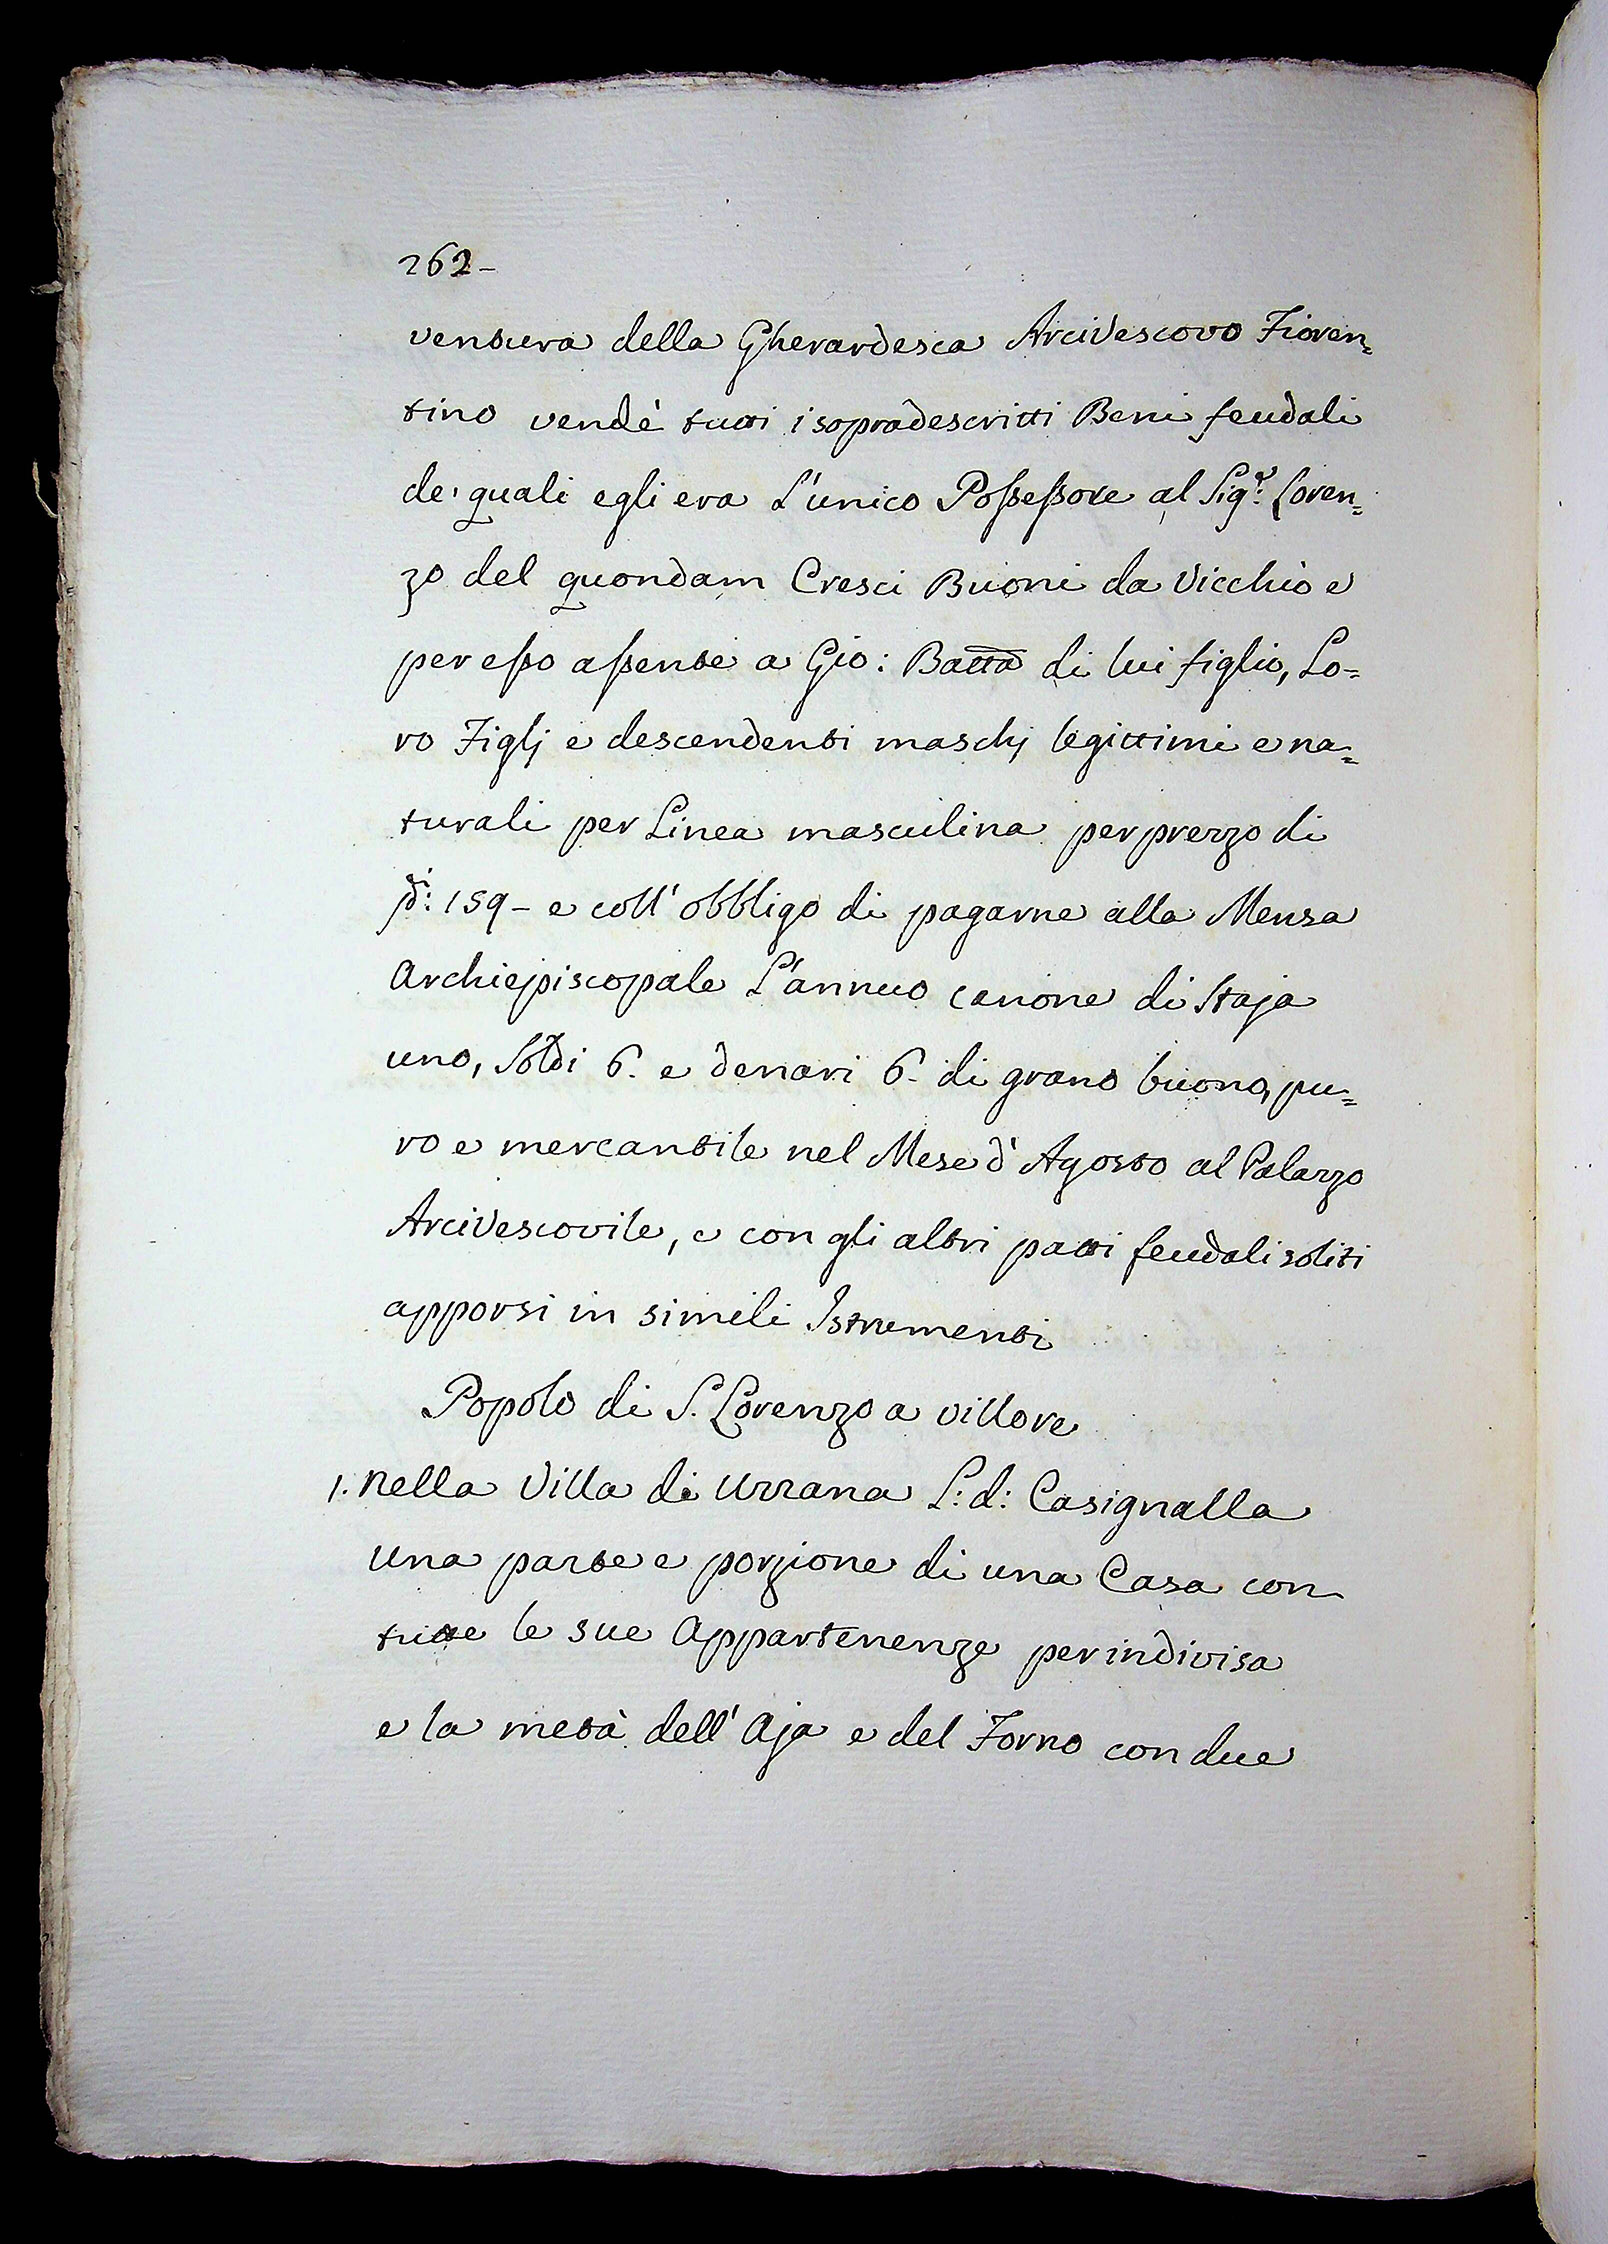 262-
ventura della Gherardesca Arcivescovo Fioren=
tino vendè tutti i sopradescritti Beni feudali
de' quali egli era L'unico Possessore al Sig.r Loren=
zo del quondam Cresci Buoni da Vicchio e
per esso assente a Gio: Batta di lui figlio, Lo=
ro Figlj e descendenti maschj legittimi e na=
turali per Linea masculina per prezzo di
159- e coll'obbligo di pagarne alla Mensa
Archiepiscopale L'annuo canone di Staja
uno, Soldi 6. e denari 6. di grano buono, pu=
ro e mercantile nel Mese d'Agosto al Palazzo
Arcivescovile, e con gli altri patti feudali soliti
apporsi in simili Istrumenti
Popolo di S. Lorenzo a Villore
1. Nella Villa di Uzzana L: d: Casignalla
una parte e porzione di una Casa con
tutte le sue Appartenenze per indivisa
e la metà dell'Aja e del Forno con due